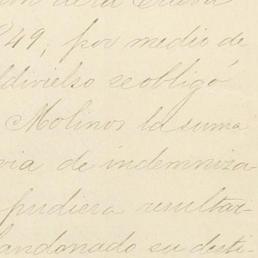 de la Cueva
49, por medio de
ldivielso se obligó
Molinos la suma
via de indemniza
pudiera resultar
landonado su desti